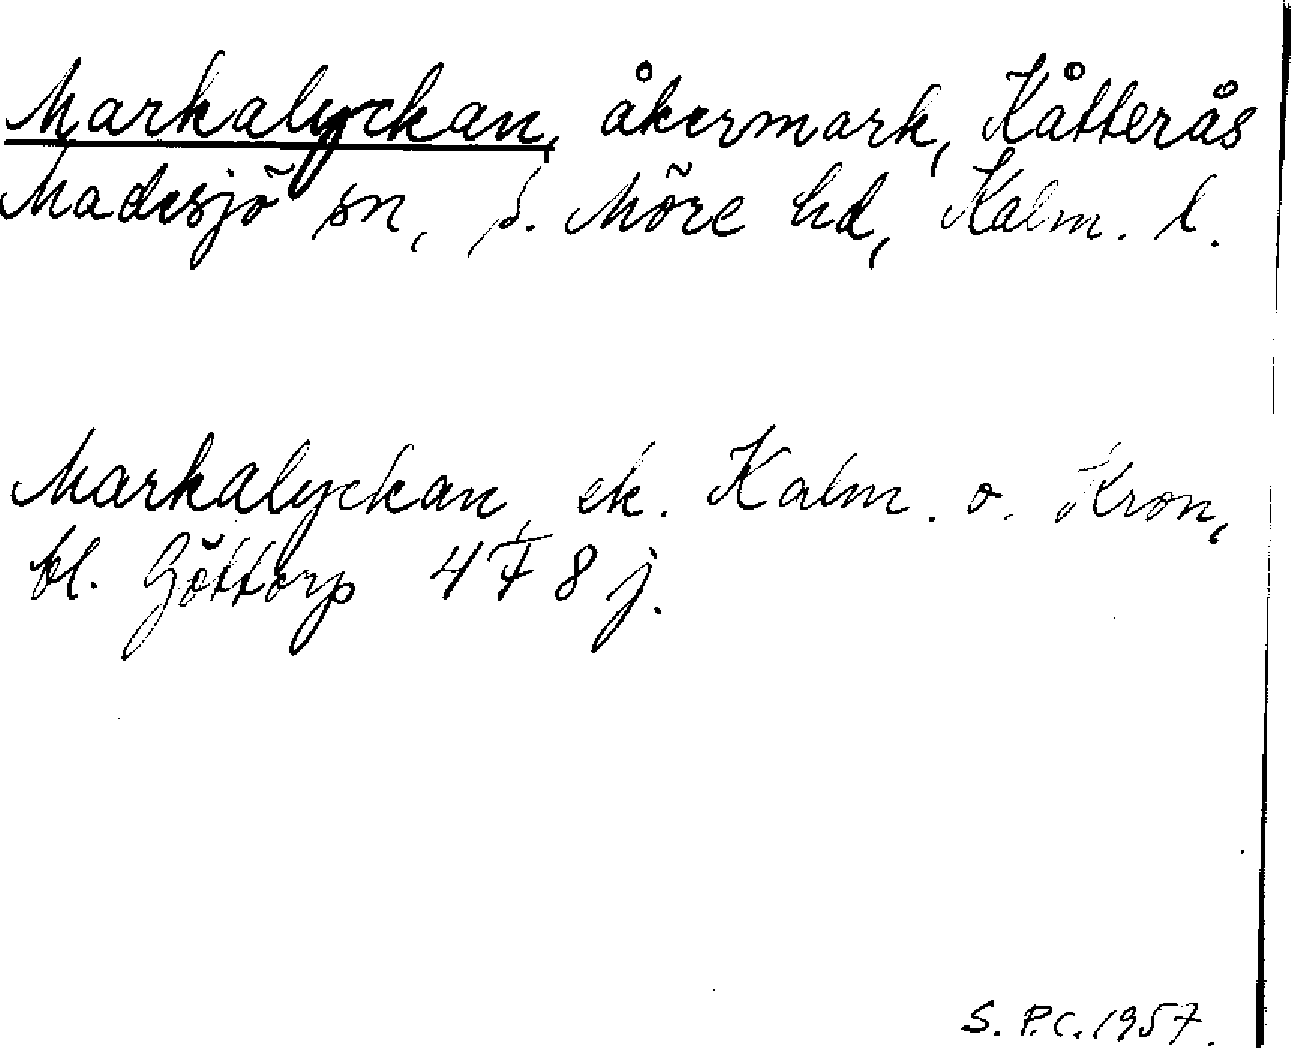 Markalyckan, åkermark, Kåtterås
Madesjö sn, S. Möre hd, Kalm. l.
Markalyckan, ek. Kalm. o. Kron,
bl. Göttorp 4 F 8 j.
S. P.C. 1957.